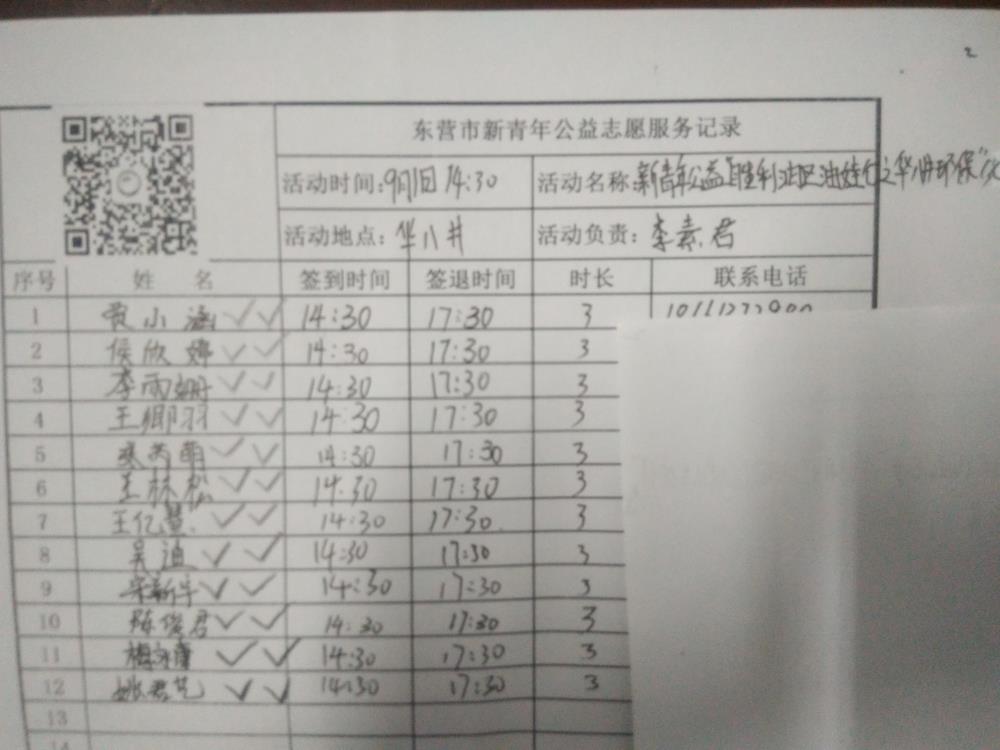 2
东营市新青年公益志愿服务记录
活动时间:9月1日 14:30 活动名称:新青年公益 胜利油区油娃 之华八井环保
活动地点: 华八井 活动负责: 李素君
序号 姓 名 签到时间 签退时间 时长 联系电话
1 贾小涵 14:30 17:30 3
2 侯欣婷 14:30 17:30 3
3 李雨珊 14:30 17:30 3
4 王卿羽 14:30 17:30 3
5 14:30 17:30 3
6 王林松 14:30 17:30 3
7 王亿慧 14:30 17:30 3
8 吴迪 14:30 17:30 3
9 宋新华 14:30 17:30 3
10 陈俊君 14:30 17:30 3
11 14:30 17:30 3
12 姚君艺 14:30 17:30 3
13
14